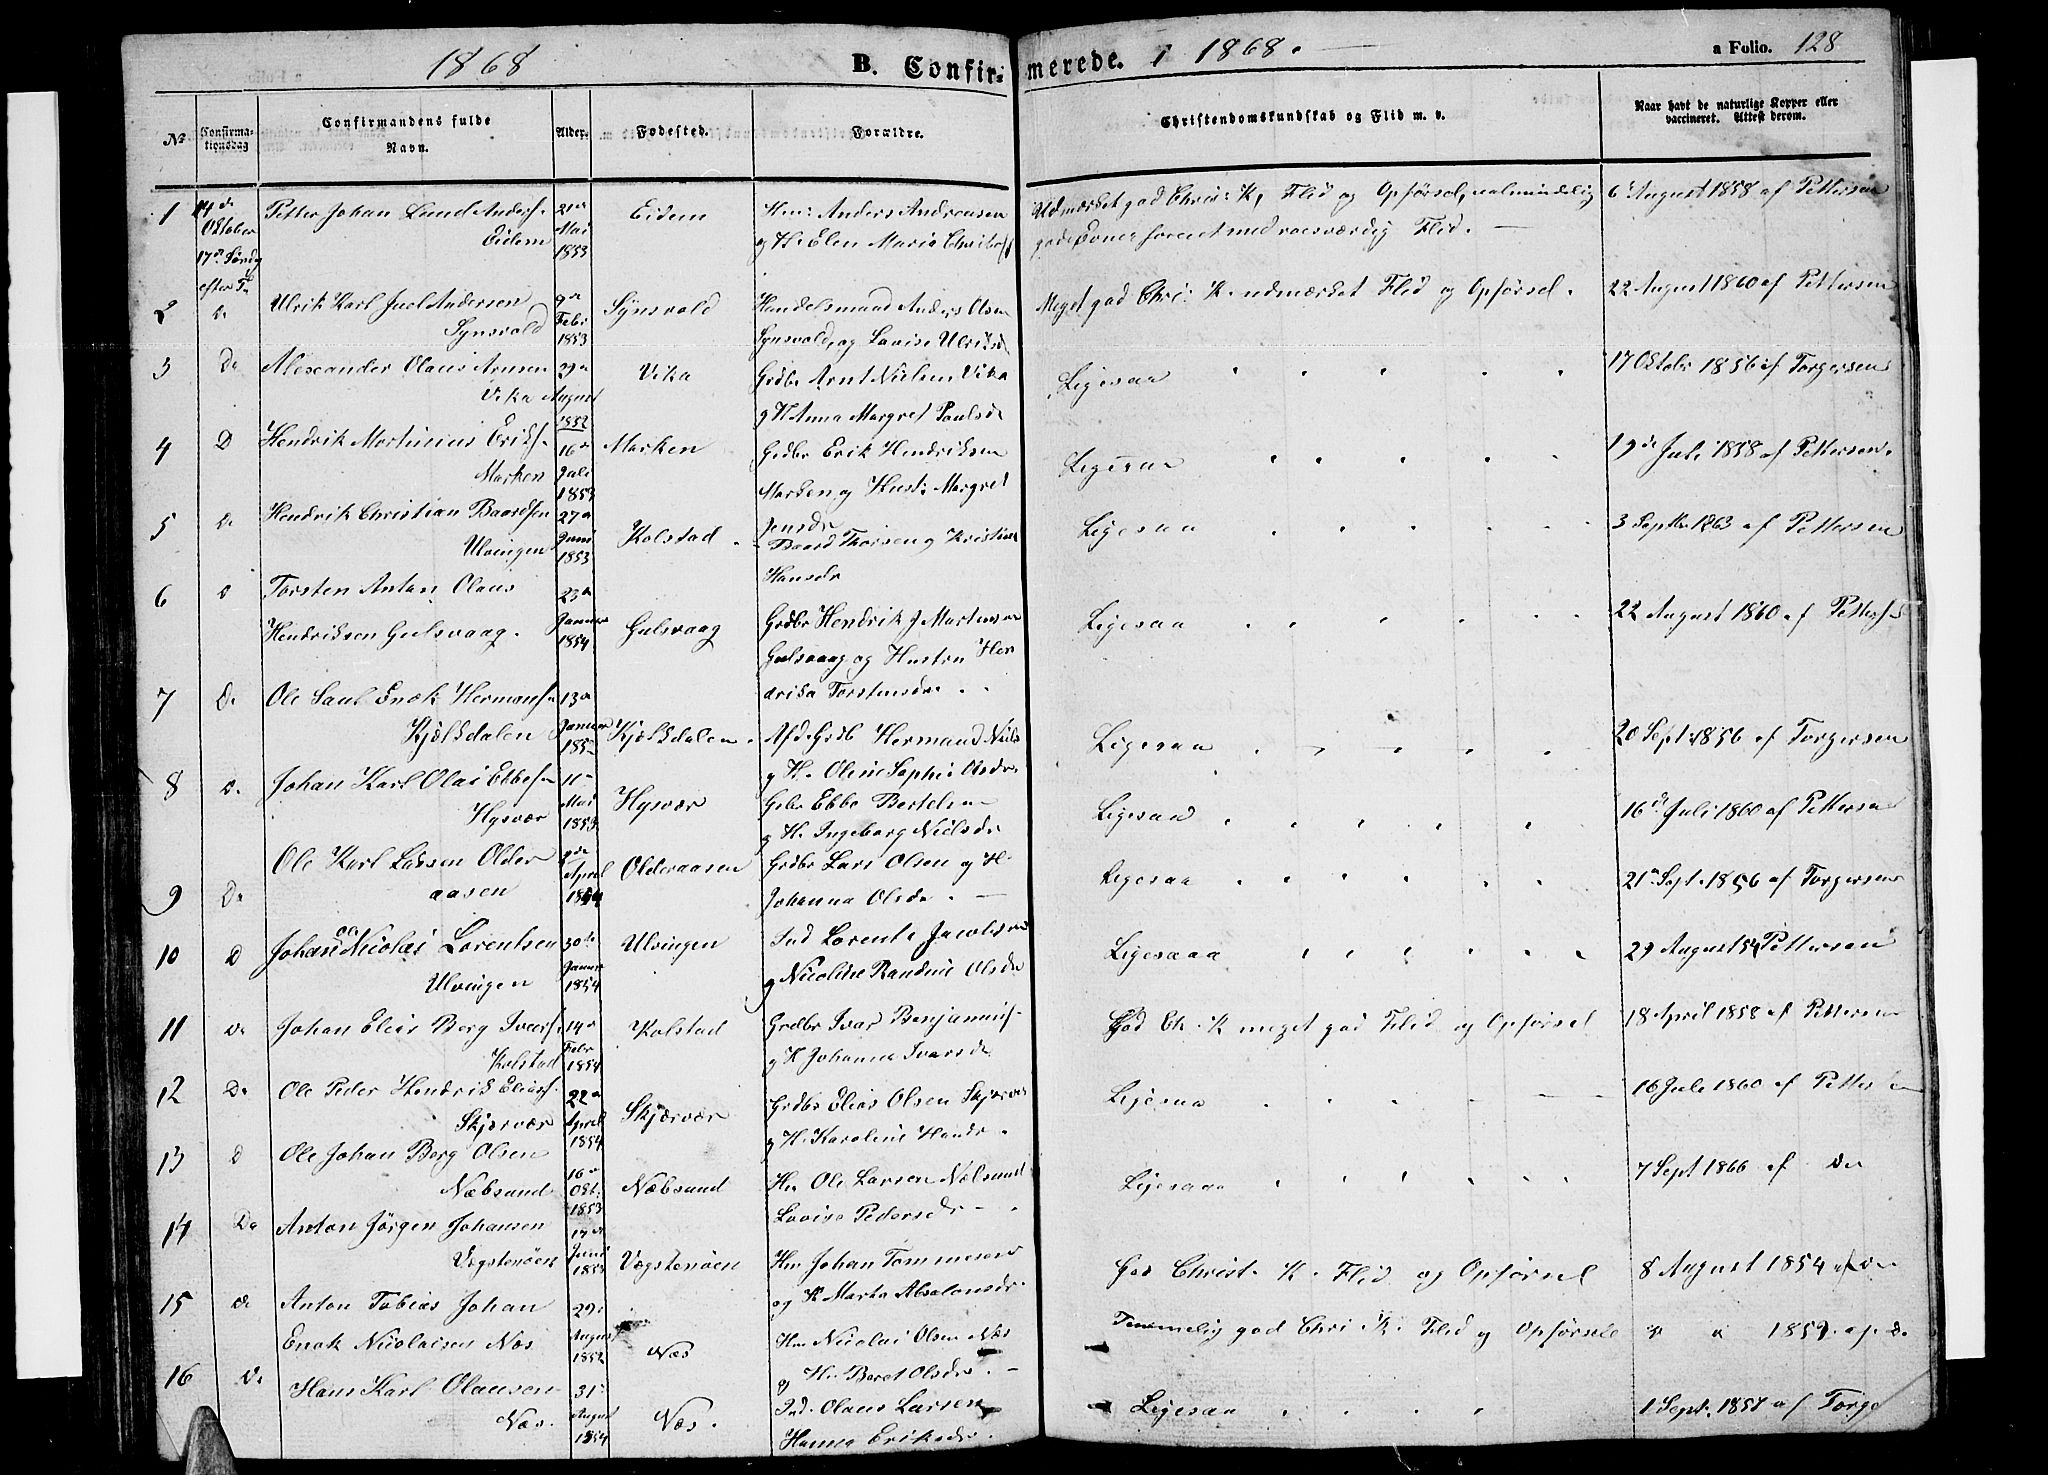 1868 B. Confirmerede. 1868. a Folio. 128
No Confirmationsdag Confirmandens fulde Navn. Alder. Fødested. Forældre. Christendomskundskab og Flid m. v. Naar havt de naturlige Kopper eller vaccineret. Attest derom.
1 4de Oktober 17de Søndg efter Tr Petter Johan Lund Anders. Eidem 21de Mai 1853 Eidem Hm: Anders Andreasen
og H. Elen Maria
Udmærket god Chris: K, Flid og Opførsel, ualmindelig
gode Evner forenet med roesværdig Flid.
6 August 1858 af Pettersen
2 Do Ulrik Karl Juel Andersen Synsvold 9de Febr 1853 Synsvold Handelsmand Anders Olsen
Synsvold, og Lovise Ulriksd
Meget god Chri: K. udmærket Flid og Opførsel. 22 August 1860 af Pettersen
3 Do Alexander Olaus Arnsen Vika 29de August 1852 Vika Grdbr Arnt Nielsen Vika
og H Anna Margret Paulsdr
Ligesaa 17 Oktobr 1856 af Torgersen
4 D Hendrik Martinius Eriks. Marken 16de Juli 1853 Marken Grdbr Erik Hendriksen
Marken og Hust: Margret
Jensdr
Ligesaa 19de Juli 1858 af Pettersen.
5 Do Hendrik Christian Baardsen Ulvingen 27de Juni 1853 Kolstad. Baard Thorsen og Kristine
Hansdr
Ligesaa 3 Septbr 1863 af Pettersen
6 D Torsten Antan Olaus
Hendriksen Gulsvaag. 23de Januar 1854 Gulsvaag Grdbr Hendrik J Martensen
Gulsvaag og Hustru Hen
drika Torstensdr.
Ligesaa 22 August 1860 af Petters
7 Do Ole Paul Enok Hermans. Kjølsdalen 13de Januar Kjølsdalen. Afd. Grdb Hermand Niels
og H. Oline Sophie Olsdr.
Ligesaa 20 Sept. 1856 af Torgersen
8 Do Johan Karl Olai Ebbes. Hysvær 11de Mai 1853 Hysvær Gdbr Ebbe Bertelsen
og H. Ingeborg Nielsdr
Ligesaa 16de Juli 1860 af Pettersen
9 Do Ole Karl Larsen Older
aasen 2de April Olderaasen Grdbr Lars Olsen og H.
Johanna Olsdr.
Ligesaa 21de Sept. 1856 af Torgersen
10 D Johan Nicolai Lorentsen
Ulvingen 30te Januar 1854 Ulvingen Ind Lorents Jacobsen
og Nicoline Randine Olsdr
Ligesaaa 29 August 54 Pettersen
11 Do Johan Elias Berg Ivars. Kolstad 14de Febr 1854 Kolstad Grdbr Ivar Benjamins.
og H Johanna Ivarsdr
God Ch. K meget god Flid og Opførsel 18 April 1858 af Pettersen
12 Do Ole Peder Hendrik Elias. Skjærvær 22de April 1854 Skjærvær Grdbr Elias Olsen Skjærvær
og H. Karoline Handr.
Ligesaa 16 Juli 1860 af Pettersen
13 D Ole Johan Berg Olsen
Næbsund 16de Okt. 1853 Næbsund Hm Ole Larsen Næbsund
Lovise Pedersdr
Ligesaa 7 Sept 1866 af Do
14 Do Anton Jørgen Johansen
Vegstenøen Juni 1853 Vegstenøen Hm Johan Tommesen
og H Marta Absalonsdr.
God Christ. K. Flid og Opførsel 8 August 1854 af Do
15 Do Anton Tobias Johan
Enok Nicolaisen Næs 29de August 1852 Næs Hm Nicolai Olsen Næs
og H. Beret Olsdr.
Temmelig god Chri K. Flid og Opførsel 1859. af. D.
16 Do Hans Karl Olausen
Næs. 31de August 1854 Næs. Ind. Olaus Larsen
Hanna Eriksdr.
Ligesaa 1 Sept. 1857 af Torge